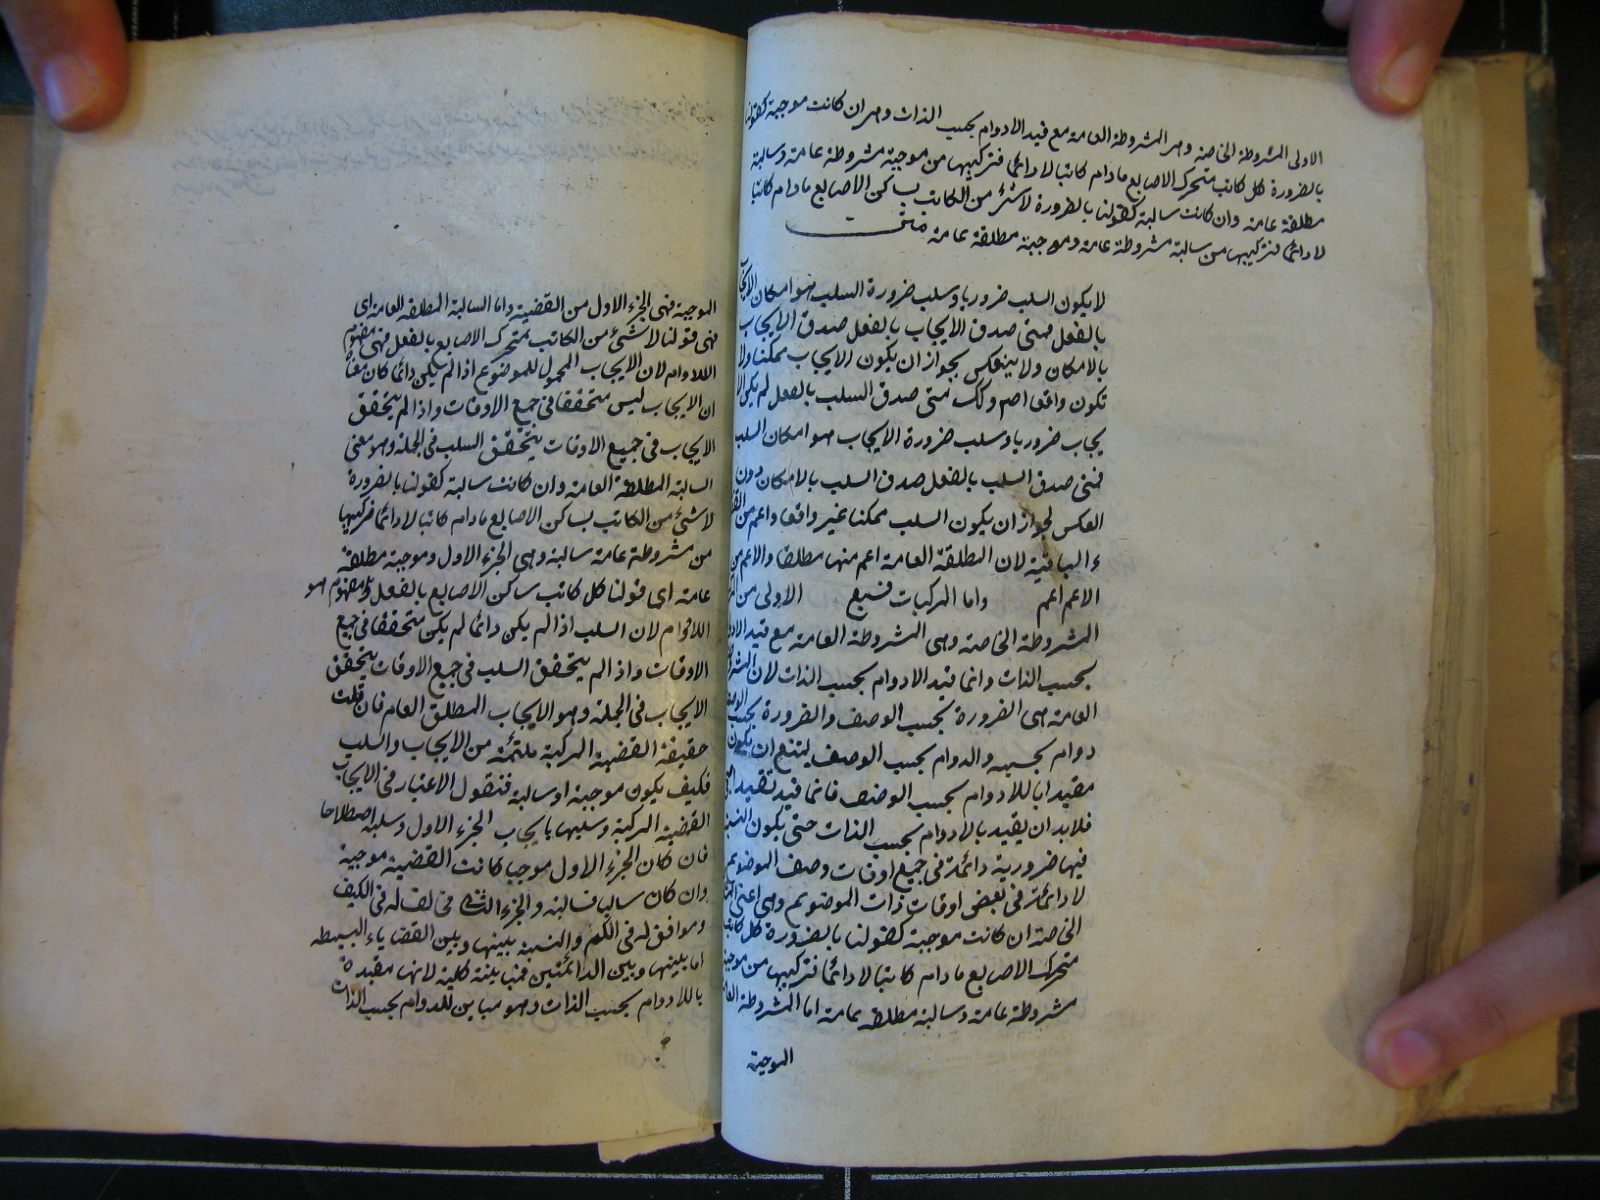 الاولى المشروطة الخاصة وهى المشروطة العامة مع قيد اللادوام بحسب الذات وهى ان كانت موجبة كقولنا
بالضرورة كل كاتب متحرك الاصابع مادام كاتبا لا دائما فتركيبها من موجبة مشروطة عامة وسالبة
مطلقة عامة وان كانت سالبة كقولنا بالضرورة لا شئ من الكاتب بساكن الاصابع مادام كاتبا
لا دائما فتركيبها من سالبة مشروطة عامة وموجبة مطلقة عامة متن
لا يكون السلب ضروريا وسلب ضرورة السلب هو امكان الايجا
بالفعل فمتى صدق الايجاب بالفعل صدق الايجاب
بالامكان ولا ينعكس بجواز ان يكون الايجاب ممكنا ولا
تكون واقعا اصم وكك متى صدق السلب بالفعل لم يكن الا
يجاب ضروريا وسلب ضرورة الايجاب هو امكان السلب
فمتى صدق السلب بالفعل صدق السلب بالامكان دون
العكس لجواز ان يكون السلب ممكنا غير واقعا واعم من القضا
ء الباقية لان المطلقة العامة اعم منها مطلقا والاعم من
الاعم اعم واما المركبات فسبع الاولى من
المشروطة الخاصة وهى المشروطة العامة مع قيد اللادوا
بحسب الذات وانما قيد اللادوام بحسب الذات لان المشرو
العامة هى الضرورة بحسب الوصف والضرورة بحسب الوصف
دوام بحسبه والدوام بحسب الوصف يمتنع ان يكون
مقيدا باللادوام بحسب الوصف فانما قيد تقيد
فلابد ان يقيد باللادوام بحسب الذات حتى يكون النسبة
فيها ضرورية دائمة فى جميع اوقات وصف الموضوع
لا دائمة فى بعض اوقات ذات الموضوع وهى اعنى
الخاصة ان كانت موجبة كقولنا بالضرورة كل كاتب
متحرك الاصابع مادام كاتبا لا دائما فتركيبها من موجبة
مشروطة عامة وسالبة مطلقة عامة اما المشروطة العامة
الموجبة
الموجبة فهى الجزء الاول من القضية واما السالبة المطلقة العامة اى
فهى قولنا لا شئ من الكاتب بمتحرك الاصابع بالفعل فهى مفهوم
اللادوام لان الايجاب المحمول للموضوع اذا لم يكن دائما كان معناه
ان الايجاب ليس متحققا فى جميع الاوقات واذا لم يتحقق
الايجاب فى جميع الاوقات يتحقق السلب فى الجملة وهو معنى
السالبة المطلقة العامة وان كانت سالبة كقولنا بالضرورة
لا شئ من الكاتب بساكن الاصابع مادام كاتبا لا دائما فتركيبها
من مشروطة عامة سالبة وهى الجزء الاول وموجبة مطلقة
عامة اى قولنا كل كاتب ساكن الاصابع بالفعل ومفهوم هو
اللادوام لان السلب اذا لم يكن دائما لم يكن متحققا فى جميع
الاوقات واذا لم يتحقق السلب فى جميع الاوقات يتحقق
الايجاب فى الجملة وهو الايجاب المطلق العام فان قلت
حقيقة القضية المركبة ملتئمة من الايجاب والسلب
فكيف يكون موجبة او سالبة فنقول الاعتبار فى الايجاب
القضية المركبة وسلبها بايجاب الجزء الاول وسلبه اصطلاحا
فان كان الجزء الاول موجبا كانت القضية موجبة
وان كان سالبا فسالبة والجزء الثانى مخالف له فى الكيف
وموافق له فى الكم والنسبة بينها وبين القضاياء البسيطه
اما بينها وبين الدائمتين فمباينة كلية لانها مقيدة
باللادوام بحسب الذات وهو مباين للدوام بحسب الذات